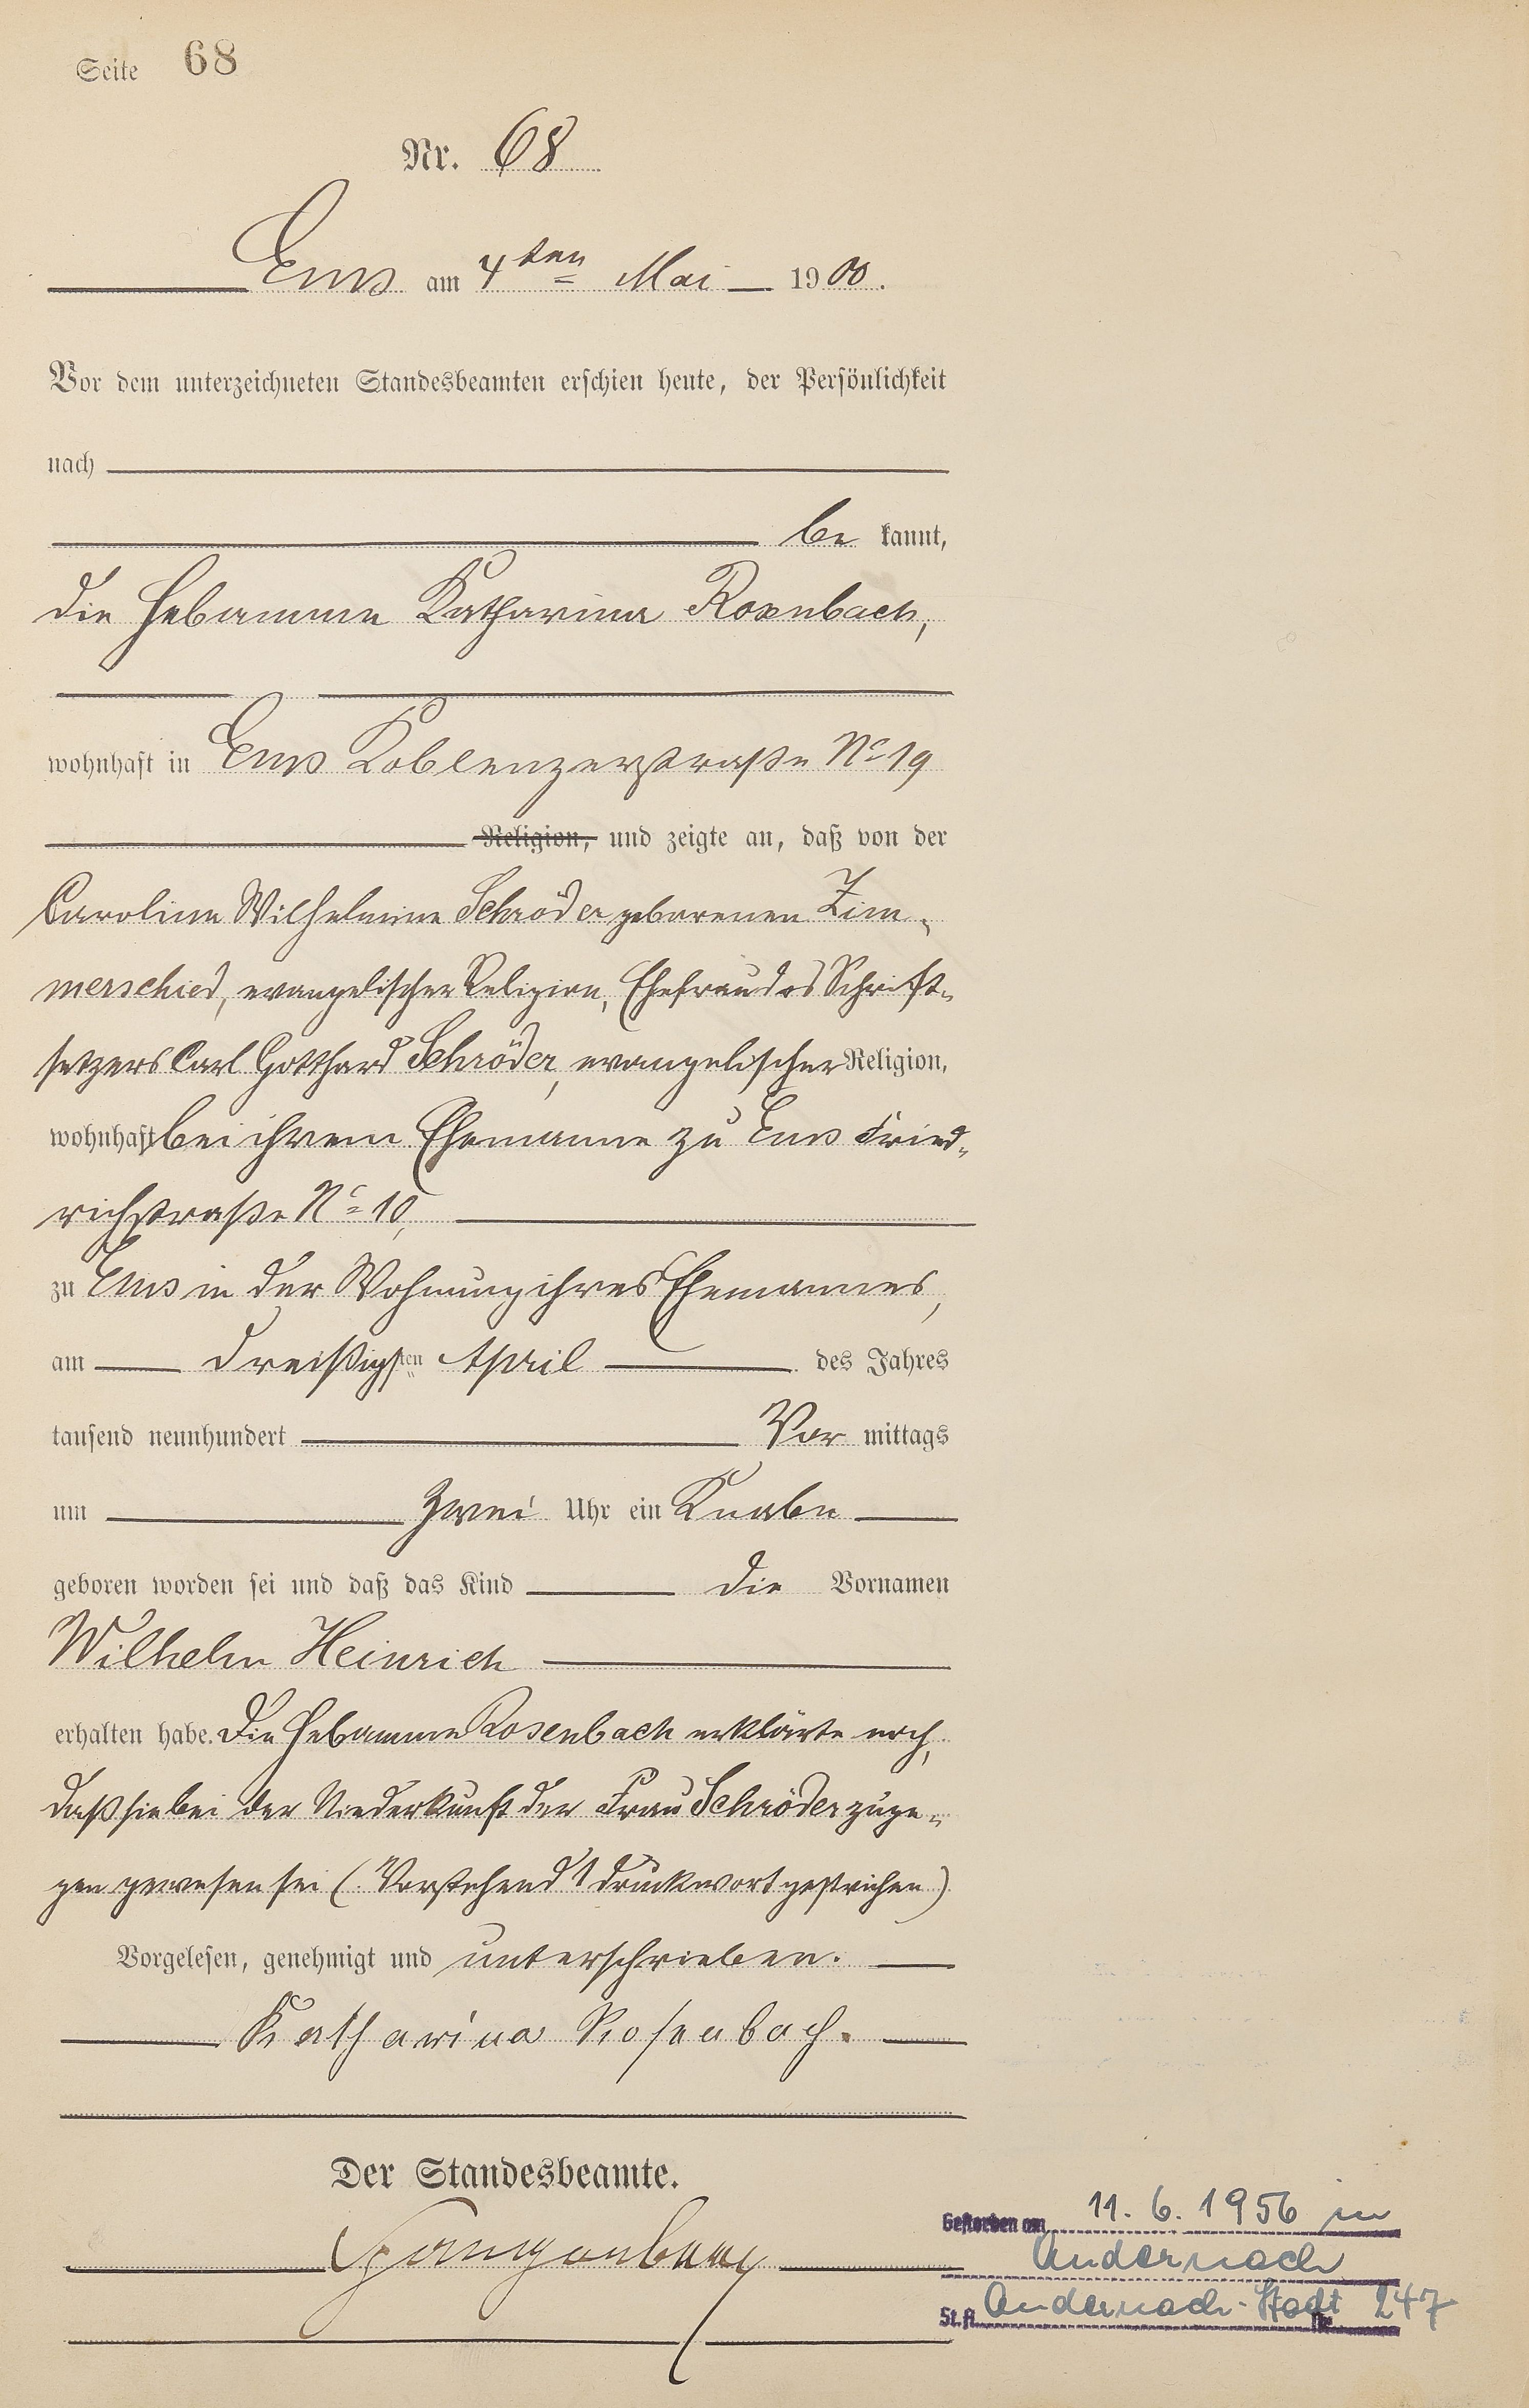 Seite 68
Nr. 68
Ems am 4ten Mai 1900.
Vor dem unterzeichneten Standesbeamten erschien heute, der Persönlichkeit
nach
be kannt,
die Hebamme Katharina Rosenbach,
wohnhaft in Ems Koblenzerstraße No 19
Religion, und zeigte an, daß von der
Caroline Wilhelmine Schröder geborenen Zim-
merschied, evangelischer Religion, Ehefrau des Schrift-
setzers Carl Gotthard Schröder, evangelischer Religion,
wohnhaft bei ihrem Ehemanne zu Ems Fried-
richstraße No 10,
zu Ems in der Wohnung ihres Ehemannes,
am dreißigsten April des Jahres
tausend neunhundert Vor mittags
um zwei Uhr ein Knabe
geboren worden sei und daß das Kind die Vornamen
Wilhelm Heinrich
erhalten habe. Die Hebamme Rosenbach erklärte noch,
daß sie bei der Niederkunft der Frau Schröder zuge-
gen gewesen sei (. Vorstehend 1 Druckwort gestrichen.)
Vorgelesen, genehmigt und unterschrieben.
Katharina Rosenbach.
Der Standesbeamte.
Gestorben am 11. 6. 1956 in
Andernach
St. A. Andernach-Stadt Nr. 247